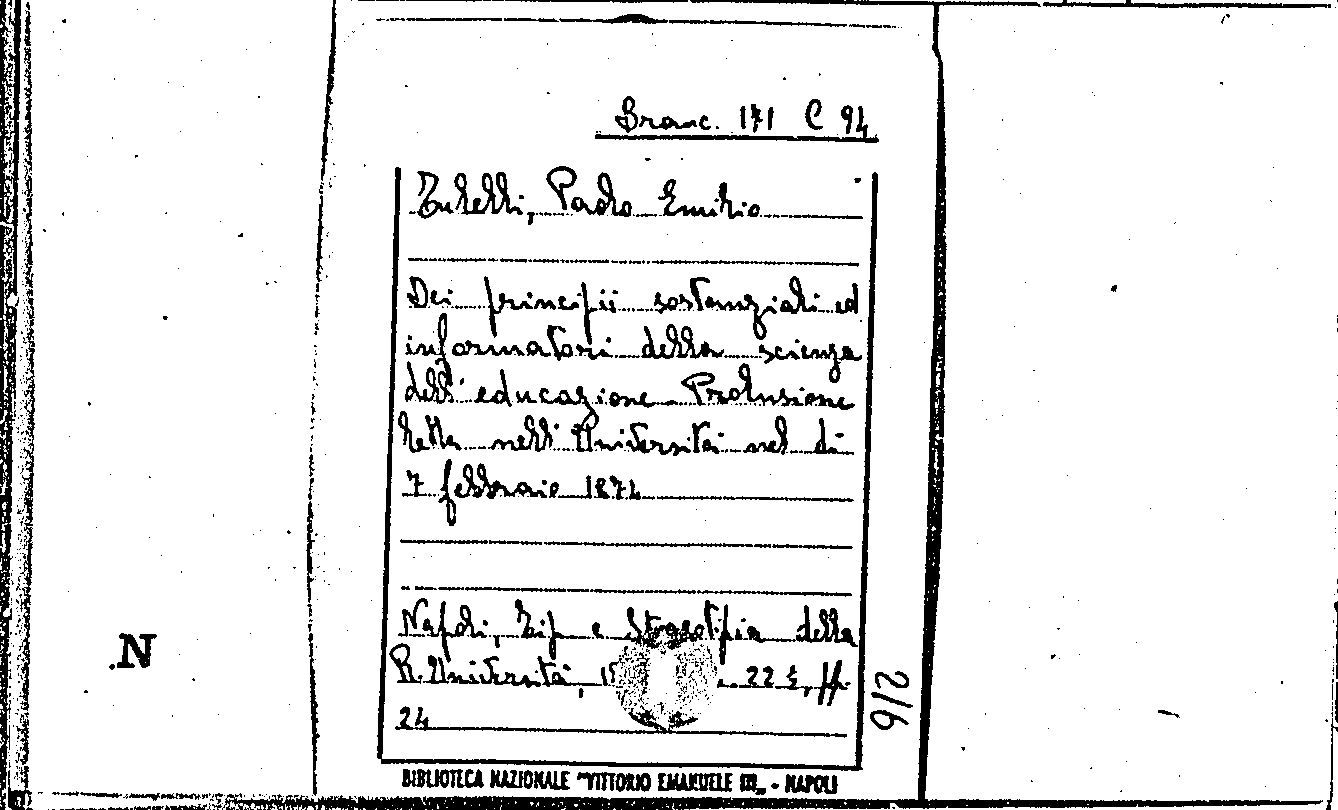 Branc. 171 C 94
Tulelli, Paolo Emilio
Dei principii sostanziali ed
informatori della scienza
dell'educazione Prolusione
letta nell'Università nel dì
7 febbraio 1874
Napoli, Tip e Stereotipia della
R. Università, 22 ½, pp.
24
216
.N
BIBLIOTECA NAZIONALE "VITTORIO EMANUELE III„ - NAPOLI